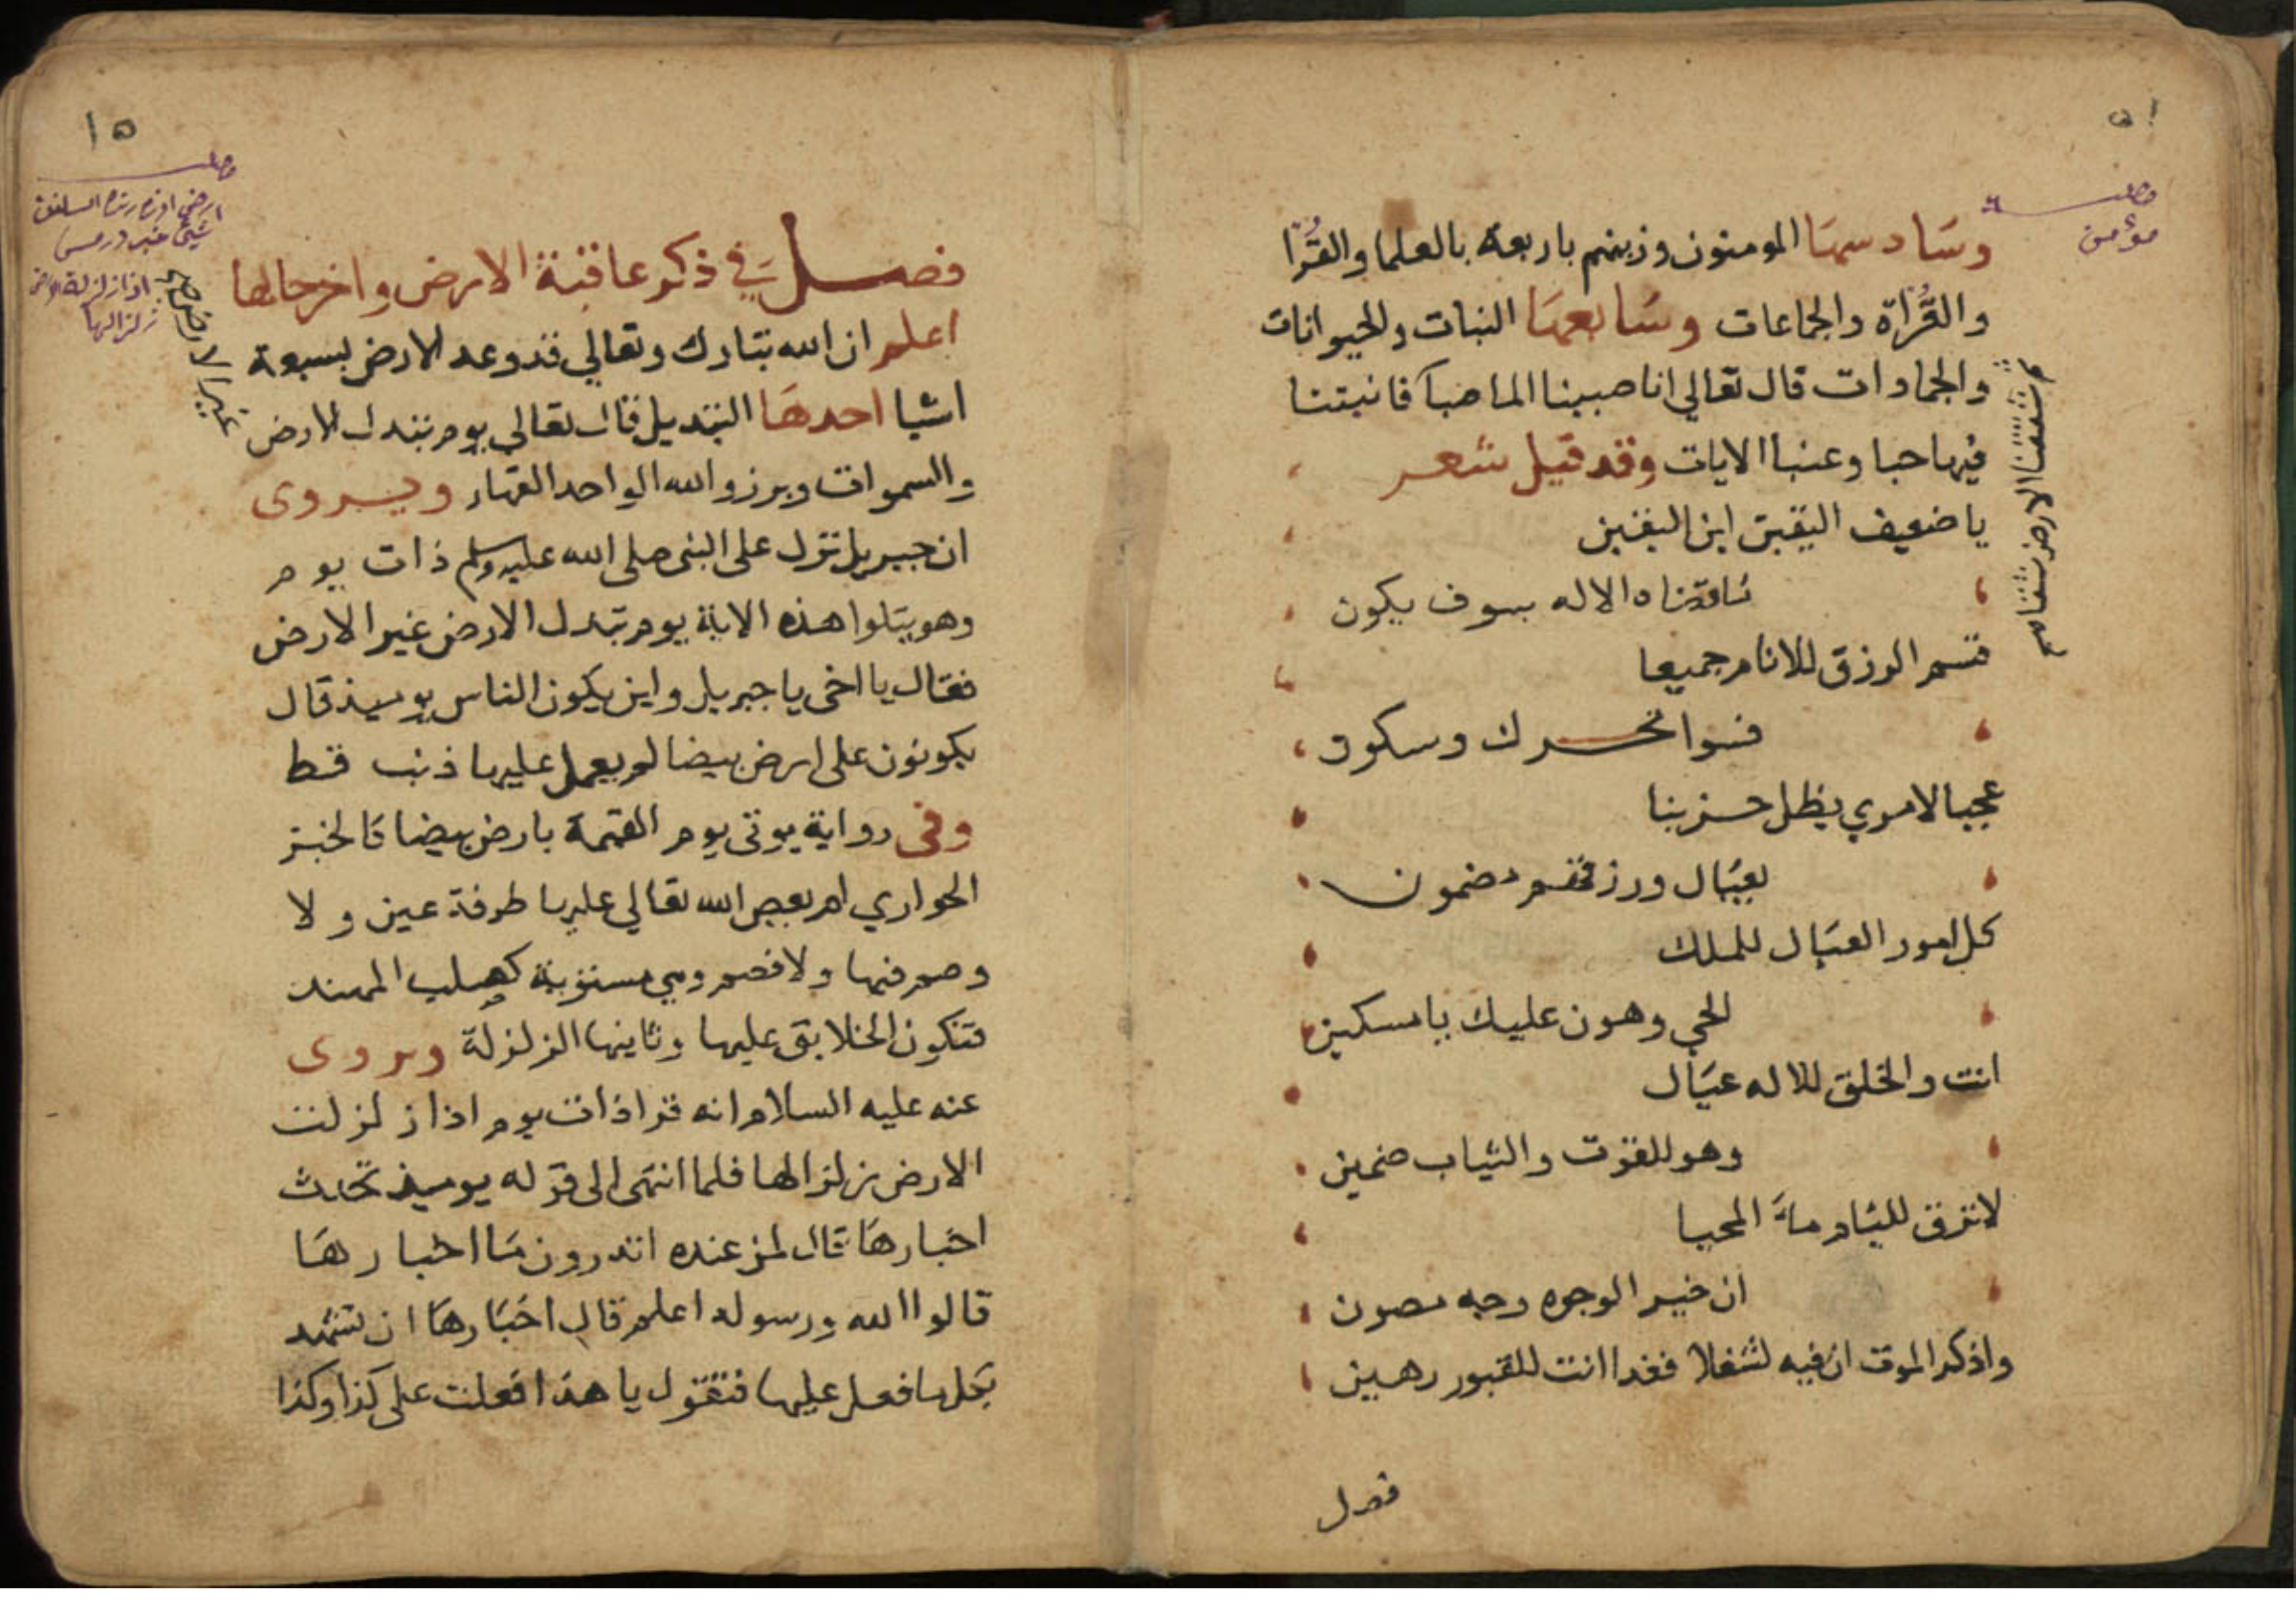 ١٥
مطلب
مؤمن
وسادسها المومنون وزينهم باربعة بالعلما والقُرّا
والقُرّاة والجماعات وسابعها النبات والحيوانات
والجمادات قال تعالي انا صببنا الما صبا فانبتنا
ثم شققنا الارض شقا صح
فيها حبا وعنبا الايات وقد قيل شعر
يا ضعيف اليقين اين اليقين
الاله سوف يكون
قسم الرزق للانام جميعا
فسوا تحرك وسكون
عجبا لامري يظل حزينا
بعيال ورزقهم مضمون
كل امور العيال للملك
الحي وهون عليك يا مسكين
انت والخلق للاله عيال
وهو للقوت والثياب ضمين
لا ترق لليام ماء المحيا
ان خير الوجوه وجه مصون
واذكر الموت ان فيه لشغلا فغدا انت للقبور رهين
فصل
١٥
مطلب
ارض
اذا زلزلت الارض
زلزالها
فصل في ذكر عاقبة الارض واخر حالها
اعلم ان الله تبارك وتعالي قد وعد الارض بسبعة
اشيا احدها التبديل قال تعالي يوم تبدل الارض
غير الارض صح
والسموات وبرزوا لله الواحد القهار ويروى
ان جبريل نزل على النبي صلى الله عليه وسلم ذات يوم
وهو يتلوا هذه الاية يوم تبدل الارض غير الارض
فقال يا اخى يا جبريل واين يكون الناس يوميذ قال
يكونون على ارض بيضا لم يعمل عليها ذنب قط
وفى رواية يوتى يوم القيمة بارض بيضا كالخبز
الحواري لم يعص الله تعالي عليها طرفة عين ولا
وصم فيها ولا فصم وهي مستوية المهند
فتكون الخلايق عليها وثانيها الزلزلة ويروى
عنه عليه السلام انه قرا ذات يوم اذا زلزلت
الارض زلزالها فلما انتهى الى قوله يوميذ تحدث
اخبارها قال لمن عنده اتدرون ما اخبارها
قالوا الله ورسوله اعلم قال اخبارها ان تشهد
بكل ما فعل عليها فتقول يا هذا فعلت على كذا وكذا